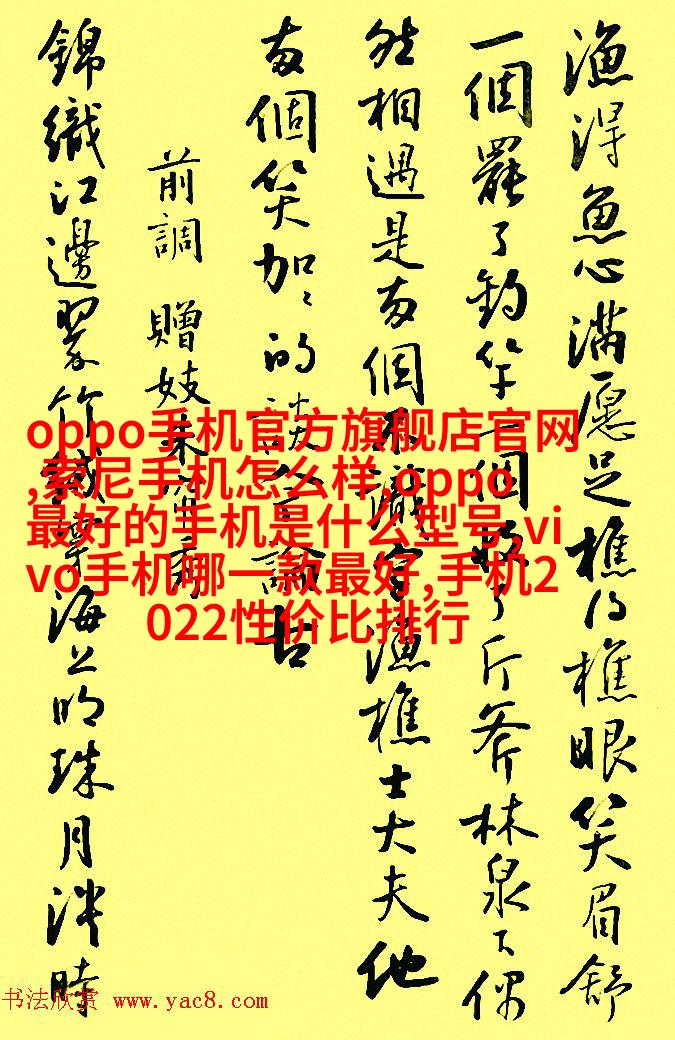 漁得魚心滿愿足樵得樵眼笑眉舒
一個罷了釣竿一個收了斤斧林泉下偶
然相遇是兩個不識字漁樵士大夫他
兩個笑加加的談今論古
前調 贈妓朱簾秀
錦織江邊翠竹絨穿海上明珠月淡時
oppo手机官方旗舰店官网
,索尼手机怎么样,oppo
最好的手机是什么型号,vi
vo手机哪一款最好,手机2
022性价比排行
书法欣赏 www.yac8.com